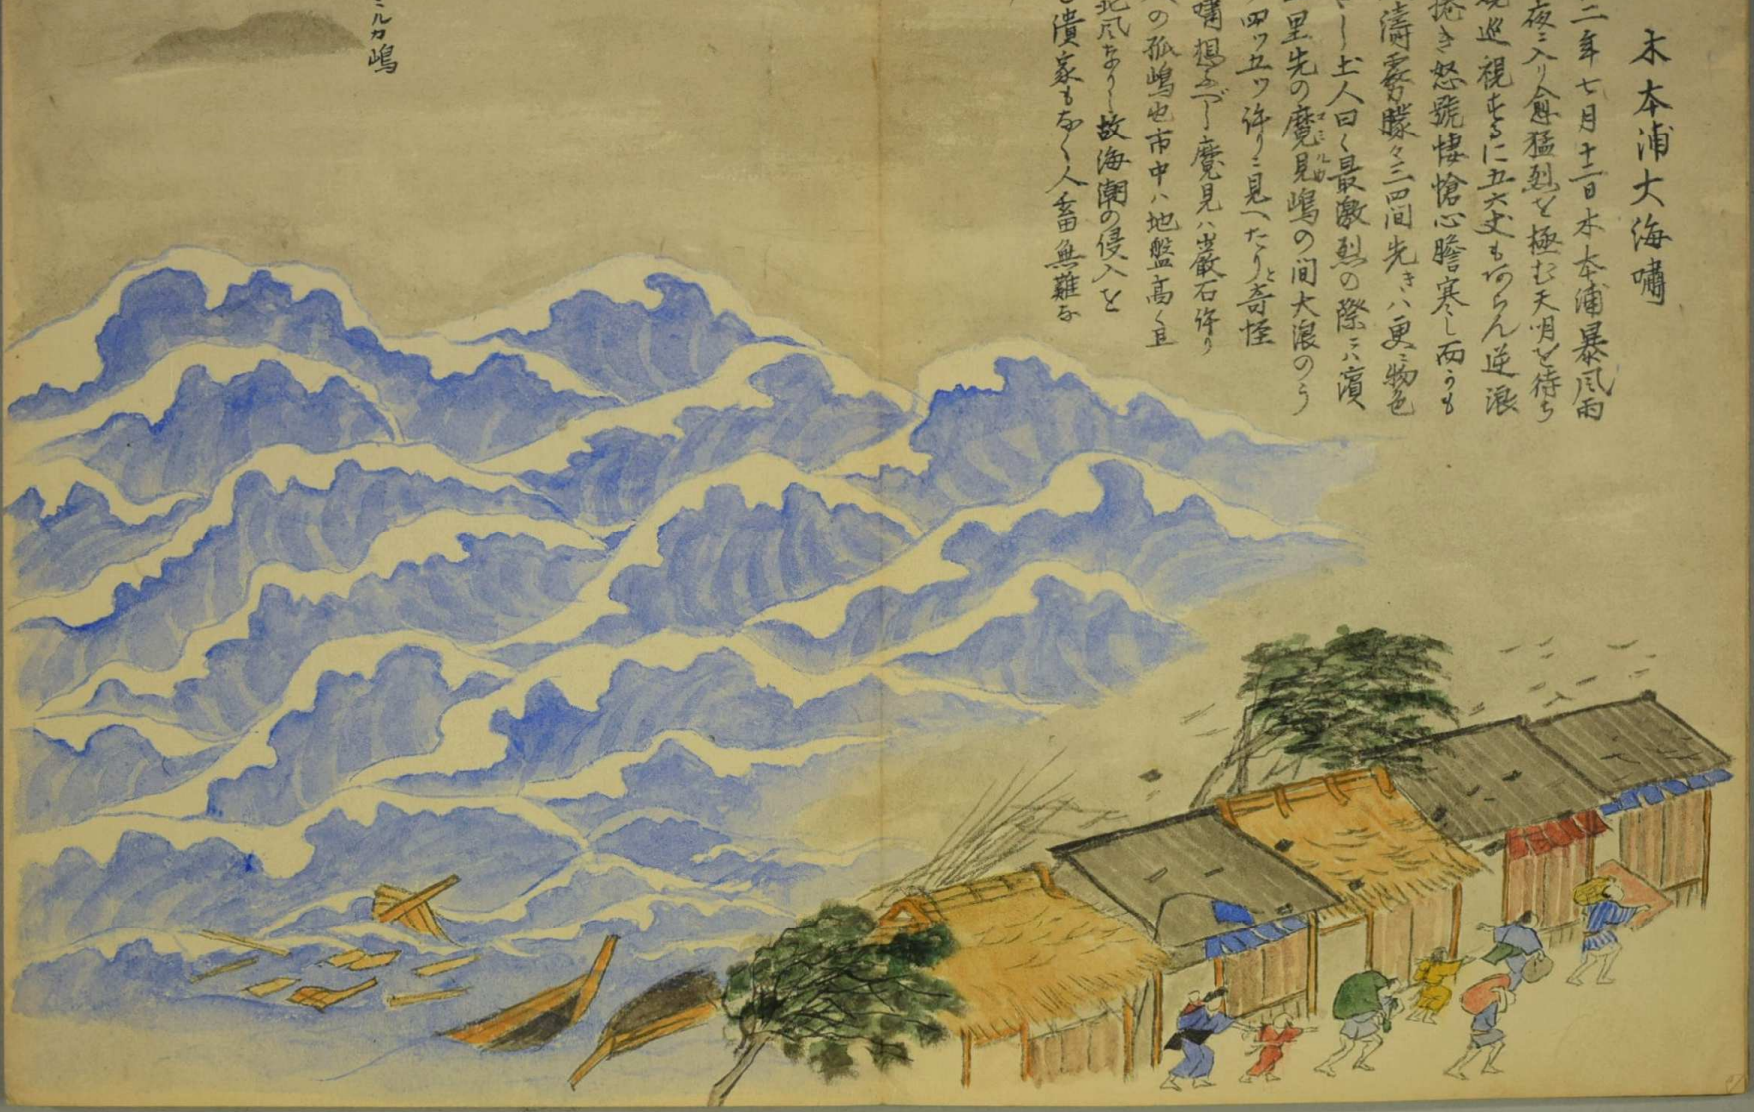 木本浦大海嘯
二年七月十二日木本浦暴風雨
夜ニ入リ愈猛烈を極む天明を待ち
巡視するに五六丈もあらん逆浪
捲き怒號悽愴心膽寒し而かも
濤霧朦々三四間先きハ更ニ物色
し土人曰く最激烈の際ニハ濱
里先の魔見嶋の間大浪のう
マミルカ
四ツ五ツ許りニ見へたりと奇怪
嘯想ふべし魔見ハ岩嚴石許り
の孤嶋也市中ハ地盤高く且
北風なりし故海潮の侵入を
潰家もなく人畜無難な
ミルカ嶋